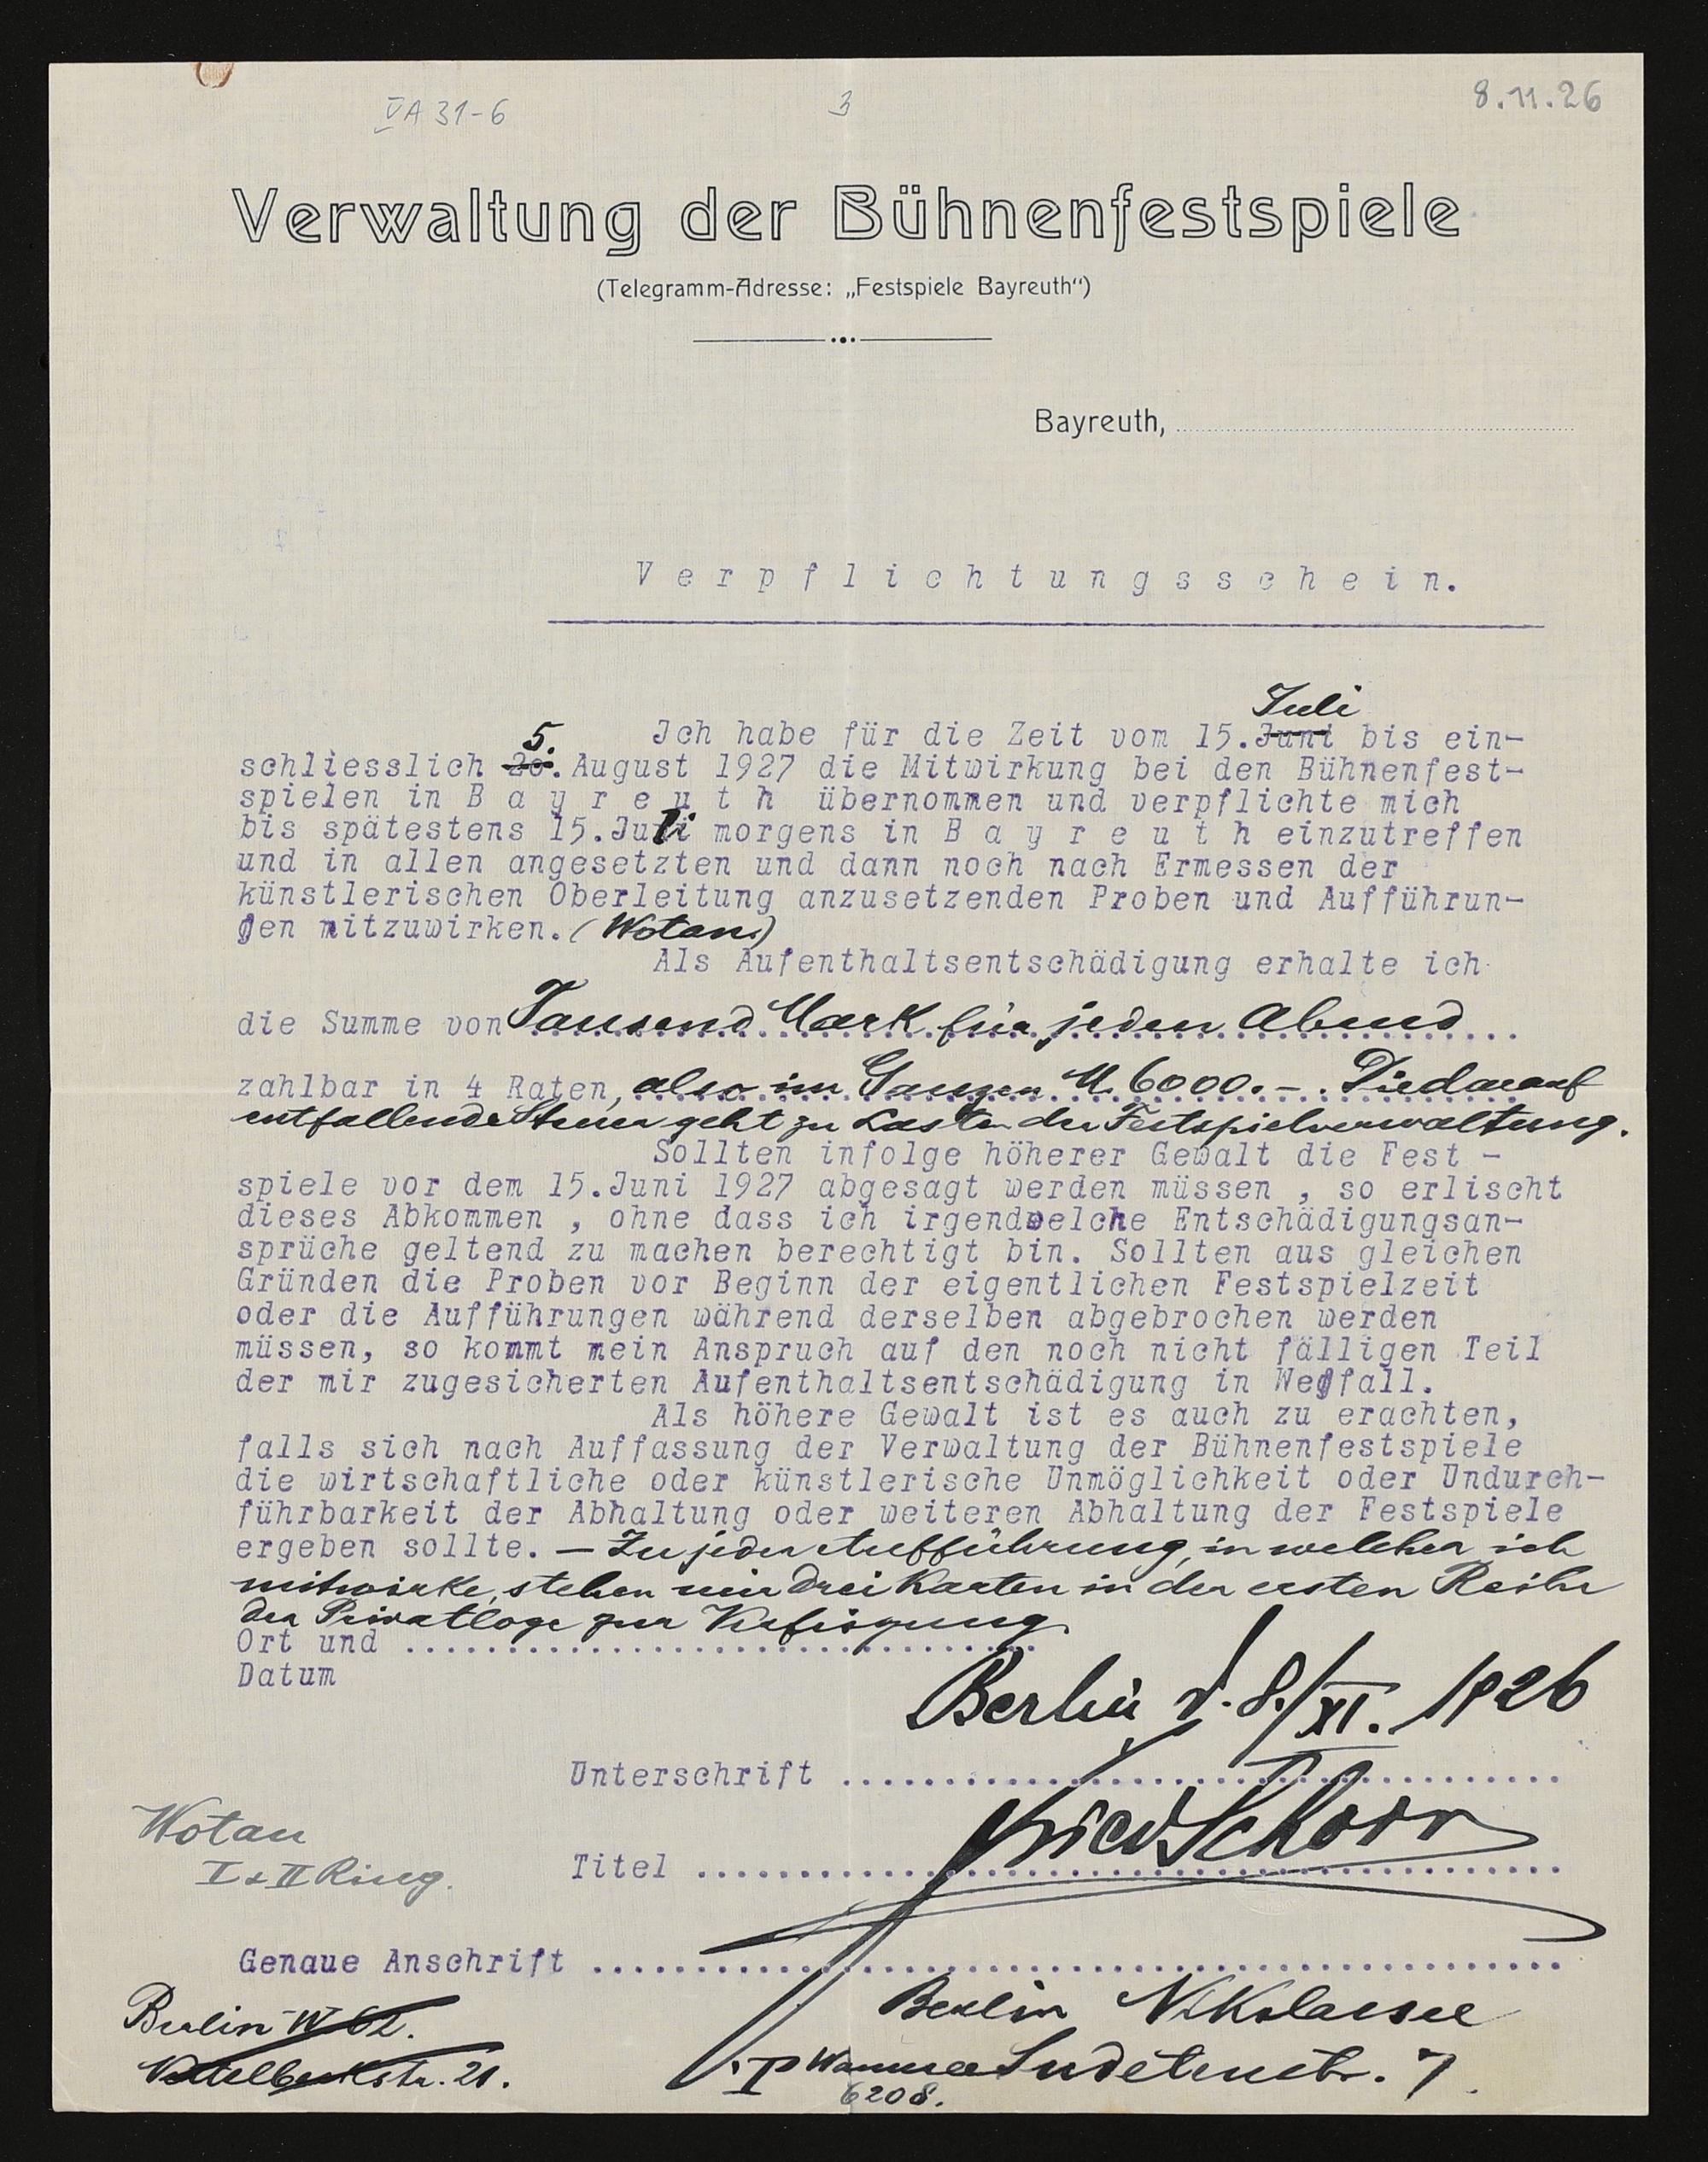 VA 31-6
3
8.11.26
Verwaltung der Bühnenfestspiele
(Telegramm-Adresse: „Festspiele Bayreuth“)
Bayreuth,
Verpflichtungsschein.
Juli
5. Ich habe für die Zeit vom 15. Juni bis ein-
schliesslich 20. August 1927 die Mitwirkung bei den Bühnenfest-
spielen in B a y r e u t h übernommen und verpflichte mich
bis spätestens 15. Juli morgens in B a y r e u t h einzutreffen
und in allen angesetzten und dann noch nach Ermessen der
künstlerischen Oberleitung anzusetzenden Proben und Aufführun-
gen mitzuwirken. (Wotan)
Als Aufenthaltsentschädigung erhalte ich
die Summe von Tausend Mark für jeden Abend
zahlbar in 4 Raten, also im Ganzen M. 6000.-. Die darauf
entfallende Steuer geht zu Lasten der Festspielverwaltung.
Sollten infolge höherer Gewalt die Fest -
spiele vor dem 15. Juni 1927 abgesagt werden müssen , so erlischt
dieses Abkommen , ohne dass ich irgendwelche Entschädigungsan-
sprüche geltend zu machen berechtigt bin. Sollten aus gleichen
Gründen die Proben vor Beginn der eigentlichen Festspielzeit
oder die Aufführungen während derselben abgebrochen werden
müssen, so kommt mein Anspruch auf den noch nicht fälligen Teil
der mir zugesicherten Aufenthaltsentschädigung in Wegfall.
Als höhere Gewalt ist es auch zu erachten,
falls sich nach Auffassung der Verwaltung der Bühnenfestspiele
die wirtschaftliche oder künstlerische Unmöglichkeit oder Undurch-
führbarkeit der Abhaltung oder weiteren Abhaltung der Festspiele
ergeben sollte. — Zu jeder Aufführung, in welcher ich
mitwirke, stehen mir drei Karten in der ersten Reihe
der Privatloge zur Verfügung.
Ort und
Datum
Berlin d. 8./XI. 1926
Unterschrift
Fried Schorr
Wotan
I + II Ring.
Titel
Genaue Anschrift
Berlin W 62.
Nettelbeckstr. 21.
Berlin Nikolassee
Sudetenstr. 7
6208.